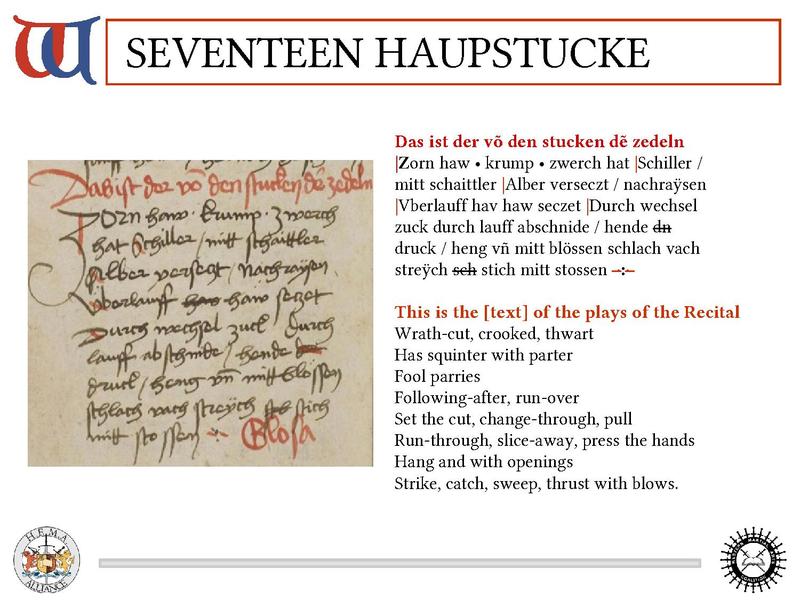 SEVENTEEN HAUPSTUCKE
Das ist der võ den stucken dẽ zedeln
Zorn haw · krump · zwerch
hat Schiller / mitt schaittler
Alber verseczt / nachraÿsen
Vberlauff haw haw seczet
Durch wechsel zuck durch
lauff abschnide / hende dn
druck / heng vñ mitt blössen
schlach vach streÿch sch stich
mitt stossen -:- Glosa
Das ist der võ den stucken dẽ zedeln
|Zorn haw • krump • zwerch hat |Schiller /
mitt schaittler |Alber verseczt / nachraÿsen
|Vberlauff hav haw seczet |Durch wechsel
zuck durch lauff abschnide / hende dn
druck / heng vñ mitt blössen schlach vach
streÿch sch stich mitt stossen –:–
This is the [text] of the plays of the Recital
Wrath-cut, crooked, thwart
Has squinter with parter
Fool parries
Following-after, run-over
Set the cut, change-through, pull
Run-through, slice-away, press the hands
Hang and with openings
Strike, catch, sweep, thrust with blows.
H.E.M.A.
ALLIANCE